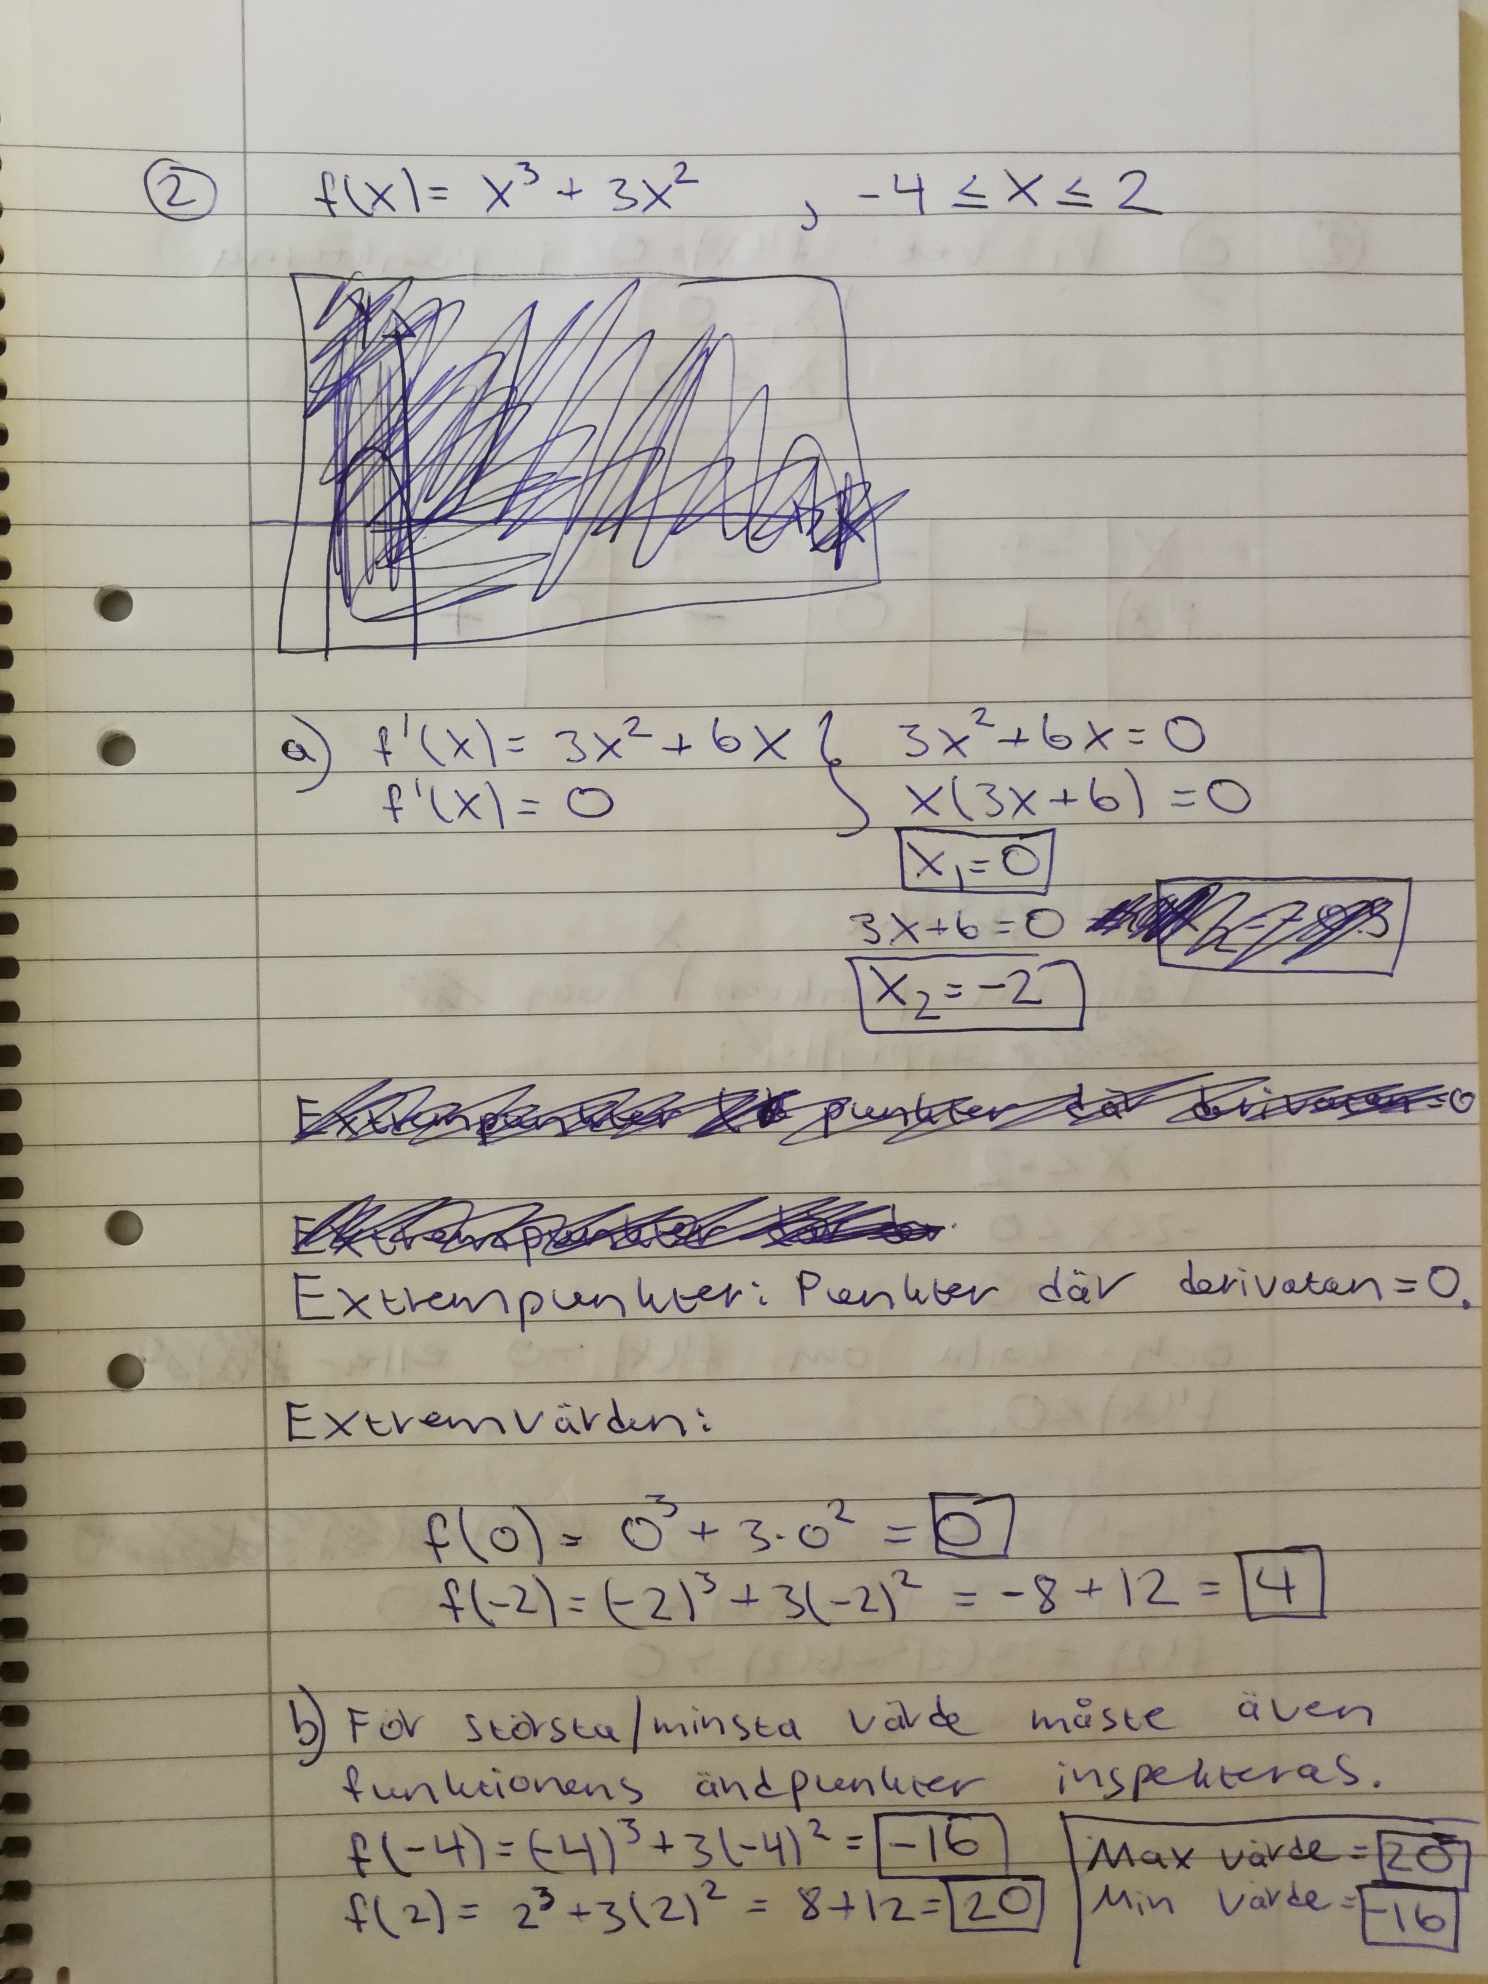 2 f(x) = x³ + 3x² , -4 ≤ x ≤ 2
a) f'(x) = 3x² + 6x } 3x² + 6x = 0
f'(x) = 0 x(3x + 6) = 0
x₁ = 0
3x + 6 = 0
x₂ = -2
Extrempunkter: Punkter där derivatan = 0.
Extremvärden:
f(0) = 0³ + 3·0² = 0
f(-2) = (-2)³ + 3(-2)² = -8 + 12 = 4
b) För största/minsta värde måste även
funktionens ändpunkter inspekteras.
f(-4) = (-4)³ + 3(-4)² = -16 Max värde = 20
f(2) = 2³ + 3(2)² = 8 + 12 = 20 Min värde = -16